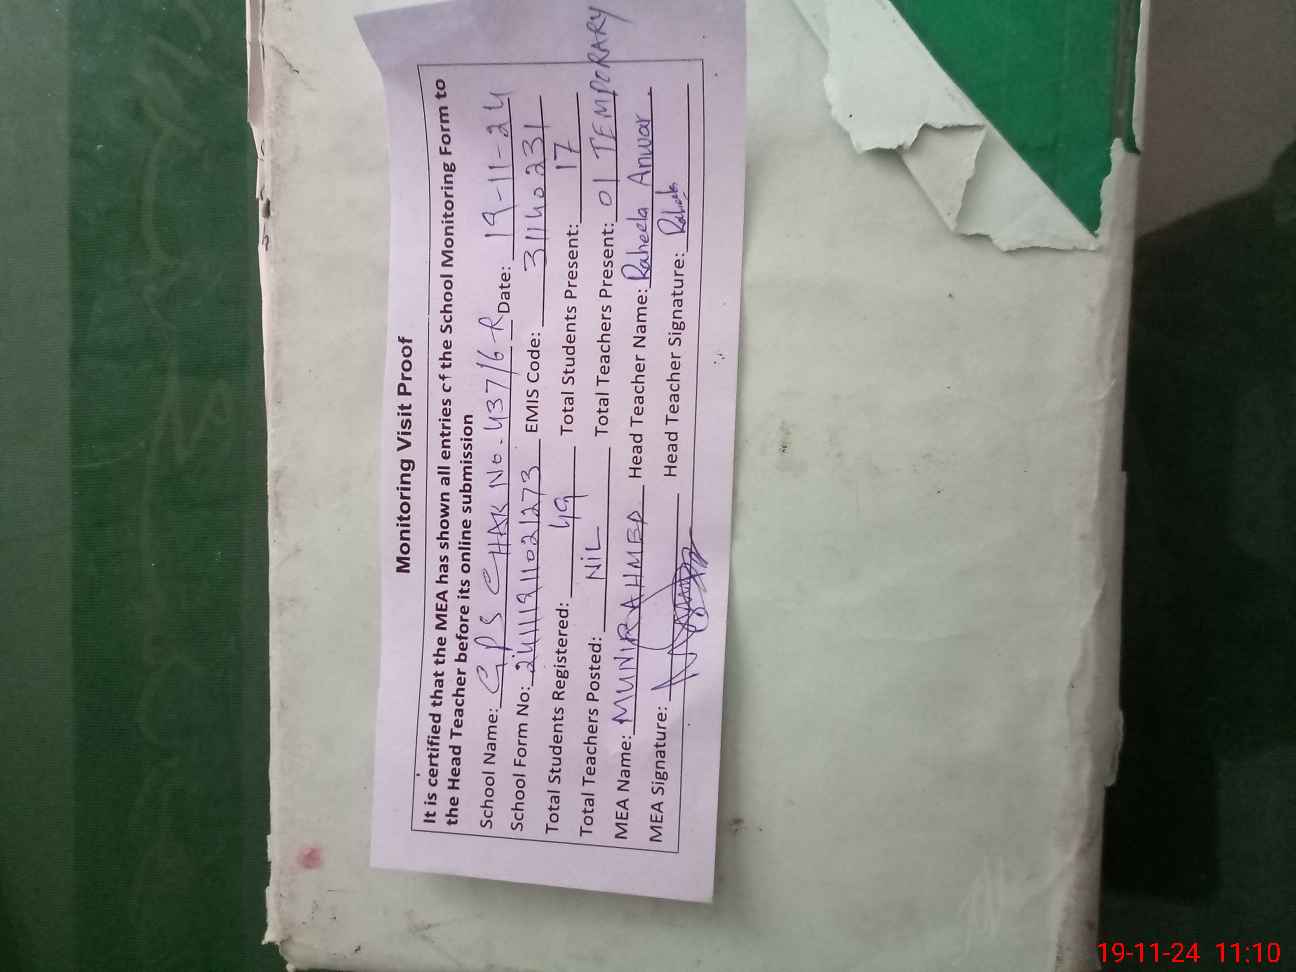 Monitoring Visit Proof
It is certified that the MEA has shown all entries of the School Monitoring Form to
the Head Teacher before its online submission
School Name: GPS CHAK No. 437/6-R Date: 19-11-24
School Form No: 24111911021273 EMIS Code: 31140231
Total Students Registered: 49 Total Students Present: 17
Total Teachers Posted: NiL Total Teachers Present: 01 TEMPORARY
MEA Name: MUNIR AHMED Head Teacher Name: Raheela Anwar
MEA Signature: Head Teacher Signature:
19-11-24 11:10